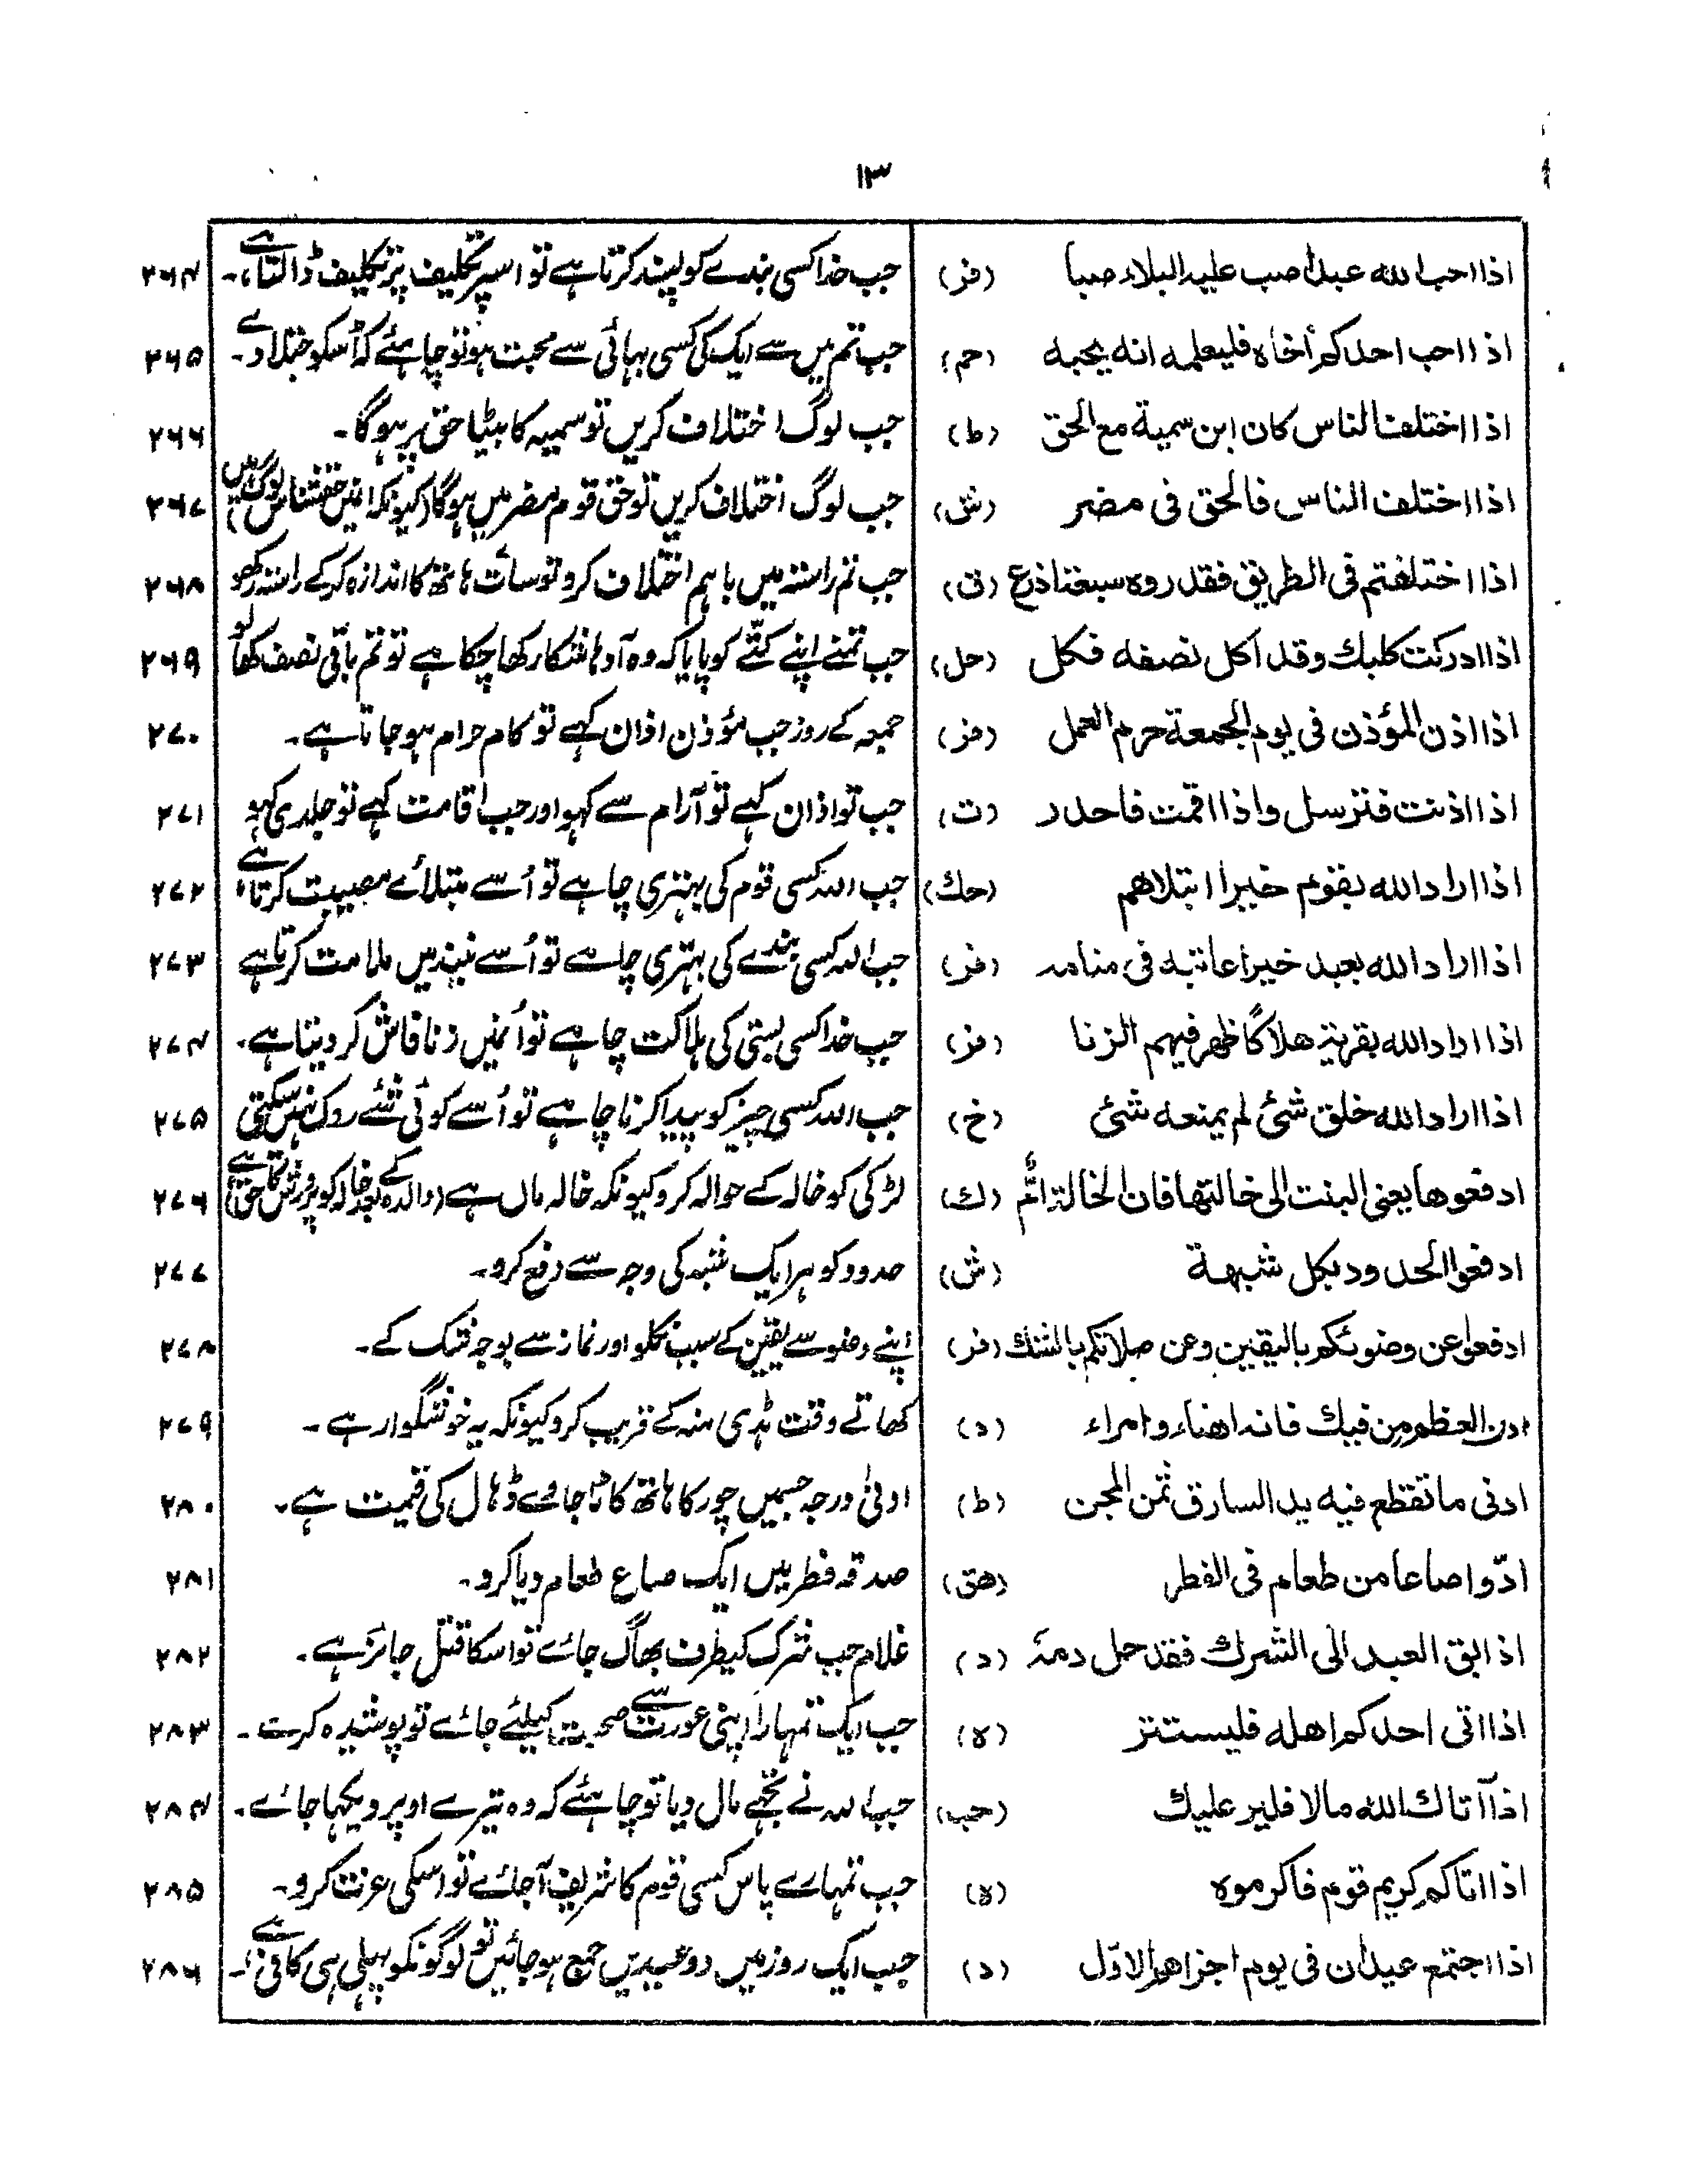 ۱۳
اذا احب الله عبدا صب عليه البلاء صبا (فز) جب خدا کسی بندے کو پسند کرتا ہے تو اسپر تکلیف پر تکلیف ڈالتا ہے۔ ۲۶۴
اذا احب احدكم أخاه فليعلمه انه يحبه (حم) جب تم میں سے ایک کی کسی بہائی سے محبت ہو تو چاہئے کہ اُسکو جتلا دے۔ ۲۶۵
اذا اختلف الناس كان ابن سمية مع الحق (ط) جب لوگ اختلاف کریں تو سمیہ کا بیٹا حق پر ہوگا۔ ۲۶۶
اذا اختلف الناس فالحق فى مضر (ش) جب لوگ اختلاف کریں تو حق قوم مضر میں ہوگا (کیونکہ انمیں حق شناس لوگ ہیں) ۲۶۷
اذا اختلفتم فى الطريق فقدروه سبعة اذرع (ق) جب تم راستہ میں باہم اختلاف کرو تو سات ہاتھ کا اندازہ کرکے راستہ رکھو ۲۶۸
اذا ادركت كلبك وقد اكل نصفه فكل (حل) جب تمنے اپنے کتّے کو پایا کہ وہ آدہا شکار کھا چکا ہے تو تم باقی نصف کھا لو ۲۶۹
اذا اذن المؤذن فى يوم الجمعة حرم العمل (فز) جمعہ کے روز جب مؤذن اذان کہے تو کام حرام ہو جاتا ہے۔ ۲۷۰
اذا اذنت فترسل واذا اقمت فاحدر (ت) جب تو اذان کہے تو آرام سے کہو اور جب اقامت کہے تو جلدی کہو ۲۷۱
اذا اراد الله بقوم خيرا ابتلاهم (حك) جب اللہ کسی قوم کی بہتری چاہے تو اُسے مبتلائے مصیبت کرتا ہے ۲۷۲
اذا اراد الله بعبد خيرا عاتبه فى منامه (فز) جب اللہ کسی بندے کی بہتری چاہے تو اُسے نیند میں ملامت کرتا ہے ۲۷۳
اذا اراد الله بقرية هلاكًا ظهر فيهم الزنا (فز) جب خدا کسی بستی کی ہلاکت چاہے تو اُنمیں زنا فاش کر دیتا ہے۔ ۲۷۴
اذا اراد الله خلق شئ لم يمنعه شئ (خ) جب اللہ کسی چیز کو پیدا کرنا چاہے تو اُسے کوئی شئے روک نہیں سکتی ۲۷۵
ادفعوها يعنى البنت الى خالتها فان الخالة امٌّ (ك) لڑکی کو خالہ کے حوالہ کرو کیونکہ خالہ ماں ہے (والدہ کے بعد خالہ کو پرورش کا حق ہے) ۲۷۶
ادفعوا الحدود بكل شبهة (ش) حدود کو ہر ایک شبہ کی وجہ سے دفع کرو۔ ۲۷۷
ادفعوا عن وضوئكم باليقين وعن صلاتكم بالشك (فر) اپنے وضو سے یقین کے سبب نکلو اور نماز سے بوجہ شک کے۔ ۲۷۸
ادن العظم من فيك فانه اهناء وامراء (د) کھاتے وقت ہڈی منہ کے قریب کرو کیونکہ یہ خوشگوار ہے۔ ۲۷۹
ادنى ما تقطع فيه يد السارق ثمن المجن (ط) ادنیٰ درجہ جسمیں چور کا ہاتھ کاٹا جاوے ڈہال کی قیمت ہے۔ ۲۸۰
ادّوا صاعا من طعام فى الفطر (هق) صدقہ فطر میں ایک صاع طعام دیا کرو۔ ۲۸۱
اذ ابق العبد الى الشرك فقد حل دمه (د) غلام جب شرک کیطرف بھاگ جائے تو اسکا قتل جائز ہے۔ ۲۸۲
اذا اتى احدكم اهله فليستتر (ه) جب ایک تمہارا اپنی عورت سے صحبت کیلئے جائے تو پوشیدہ کرے۔ ۲۸۳
اذا آتاك الله مالا فلير عليك (حب) جب اللہ نے تجھے مال دیا تو چاہئے کہ وہ تیرے اوپر دیکہا جائے۔ ۲۸۴
اذا اتاكم كريم قوم فاكرموه (ه) جب تمہارے پاس کسی قوم کا شریف آجائے تو اسکی عزت کرو۔ ۲۸۵
اذا اجتمع عيدان فى يوم اجزاهم الاوّل (د) جب ایک روز میں دو عیدیں جمع ہو جائیں تو لوگونکو پہلی ہی کافی ہے۔ ۲۸۶